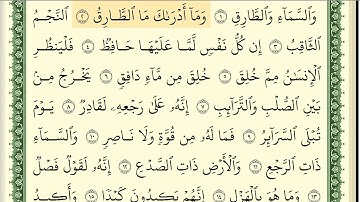 وَالسَّمَآءِ وَالطَّارِقِ ۝١ وَمَآ أَدْرَىٰكَ مَا الطَّارِقُ ۝٢ النَّجْمُ
الثَّاقِبُ ۝٣ إِن كُلُّ نَفْسٍ لَّمَّا عَلَيْهَا حَافِظٌ ۝٤ فَلْيَنظُرِ
الْإِنسَٰنُ مِمَّ خُلِقَ ۝٥ خُلِقَ مِن مَّآءٍ دَافِقٍ ۝٦ يَخْرُجُ مِنۢ
بَيْنِ الصُّلْبِ وَالتَّرَآئِبِ ۝٧ إِنَّهُۥ عَلَىٰ رَجْعِهِۦ لَقَادِرٌ ۝٨ يَوْمَ
تُبْلَى السَّرَآئِرُ ۝٩ فَمَا لَهُۥ مِن قُوَّةٍ وَلَا نَاصِرٍ ۝١٠ وَالسَّمَآءِ
ذَاتِ الرَّجْعِ ۝١١ وَالْأَرْضِ ذَاتِ الصَّدْعِ ۝١٢ إِنَّهُۥ لَقَوْلٌ فَصْلٌ
۝١٣ وَمَا هُوَ بِالْهَزْلِ ۝١٤ إِنَّهُمْ يَكِيدُونَ كَيْدًا ۝١٥ وَأَكِيدُ